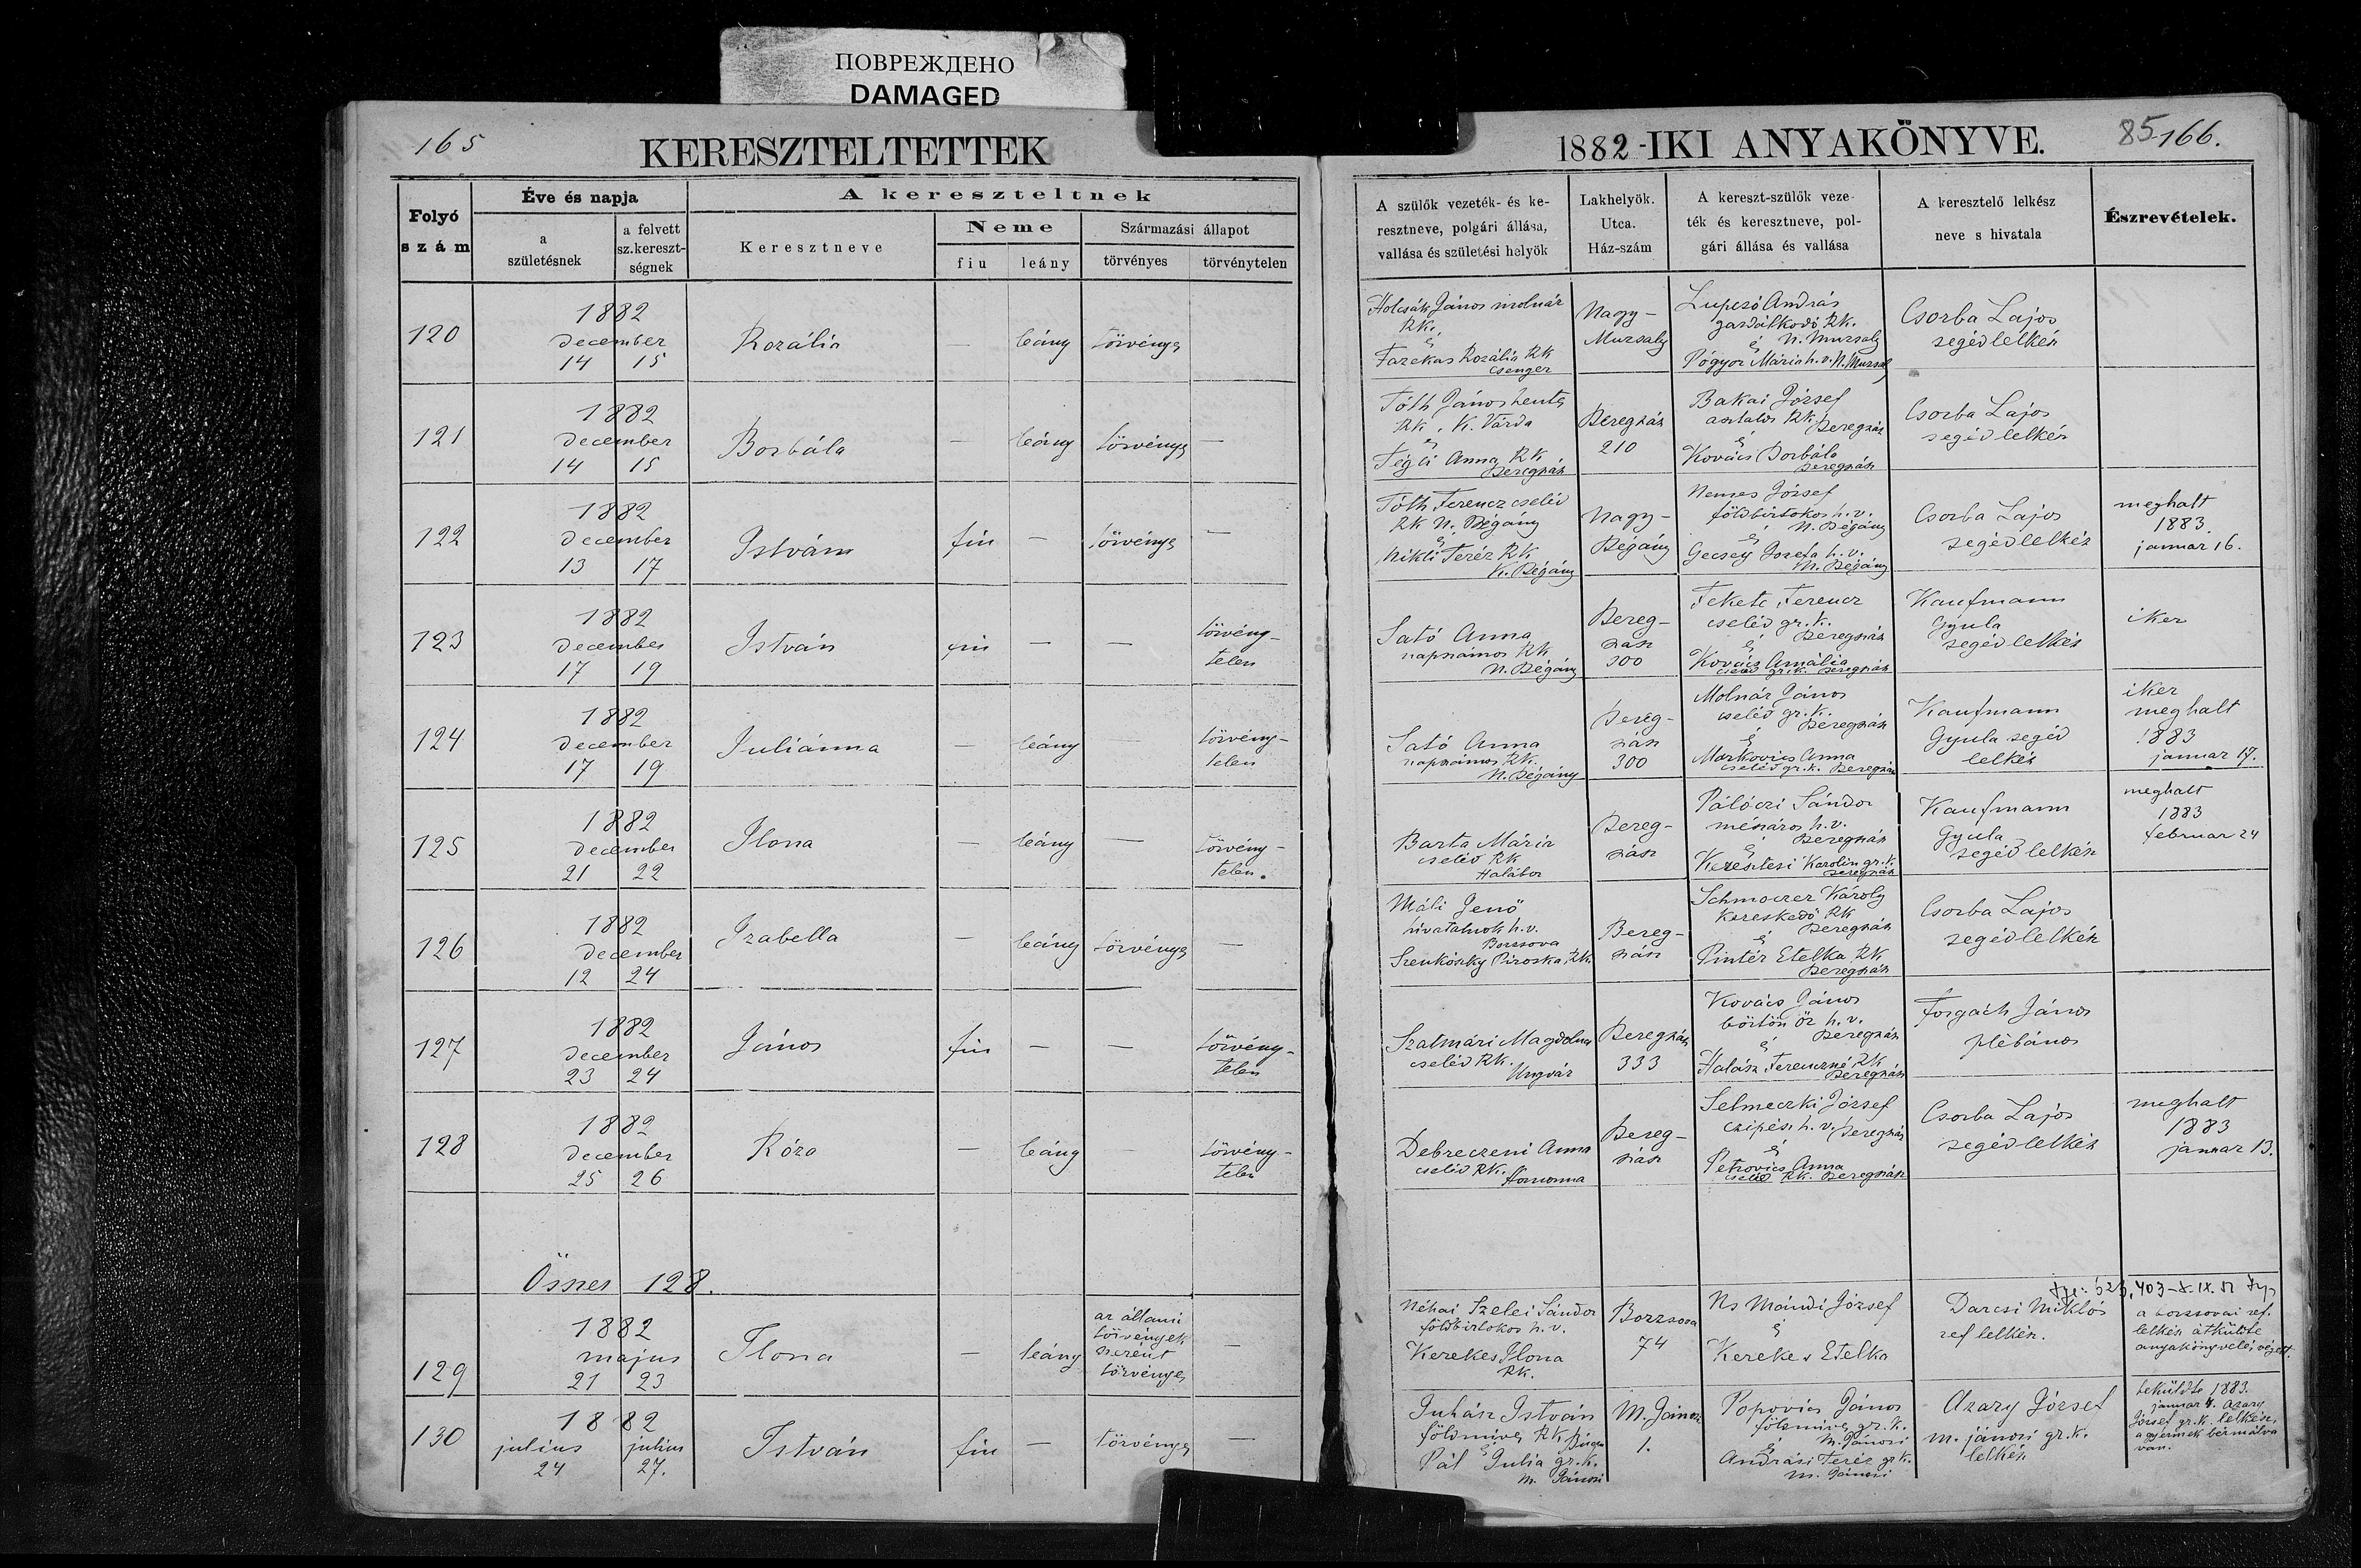 ПОВРЕЖДЕНО
DAMAGED
165
KERESZTELTETTEK
Folyó
szám
Éve és napja
a
születésnek
a felvett
sz.kereszt-
ségnek
A kereszteltnek
Keresztneve
Neme
fiu
leány
Származási állapot
törvényes
törvénytelen
1882-IKI ANYAKÖNYVE.
85
166.
A szülők vezeték- és ke-
resztneve, polgári állása,
vallása és születési helyök
Lakhelyök.
Utca.
Ház-szám
A kereszt-szülők veze-
ték és keresztneve, pol-
gári állása és vallása
A keresztelő lelkész
neve s hivatala
Észrevételek.
120
1882
december
14 15
Rozália
—
leány
törvényes
Holcsák János molnár
RK.
é
Fazekas Rozália RK
Csenger
Nagy-
Muzsaly
Lupczó András
gazdálkodó RK.
é N. Muzsaly
Pógyor Mária h.v. N. Muzsaly
Csorba Lajos
segédlelkész
121
1882
december
14 15
Borbála
—
leány
törvényes
—
Tóth János hentes
RK. K. Várda
é
Tégli Anna RK
Beregszász
Beregszász
210
Bakai József
asztalos RK. Beregszász
é
Kovács Borbála
Beregszász
Csorba Lajos
segédlelkész
122
1882
december
13 17
István
fiu
—
törvényes
—
Tóth Ferencz cseléd
RK N. Bégány
é
Nikli Teréz RK
K. Bégány
Nagy-
Bégány
Nemes József
földbirtokos h.v.
é N. Bégány
Gecsey Jozefa h.v.
N. Bégány
Csorba Lajos
segédlelkész
meghalt
1883
januar 16.
123
1882
december
17 19
István
fiu
—
—
törvény-
telen
Sató Anna
napszámos RK
N. Bégány
Bereg-
szász
300
Fekete Ferencz
cseléd gr.k.
é Beregszász
Kovács Amália
cseléd gr.k. Beregszász
Kaufmann
Gyula
segédlelkész
iker
124
1882
december
17 19
Juliánna
—
leány
—
törvény-
telen
Sató Anna
napszámos RK.
N. Bégány
Bereg-
szász
300
Molnár János
cseléd gr.k.
é Beregszász
Markovics Anna
cseléd gr.k. Beregszász
Kaufmann
Gyula segéd
lelkész
iker
meghalt
1883
januar 17.
125
1882
december
21 22
Ilona
—
leány
—
törvény-
telen.
Barta Mária
cseléd RK
Halábor
Bereg-
szász
Pálóczi Sándor
mészáros h.v.
é Beregszász
Keresztesi Karolin gr.k.
Beregszász
Kaufmann
Gyula
segédlelkész
meghalt
1883
februar 24
126
1882
december
12 24
Izabella
—
leány
törvényes
—
Máli Jenő
hivatalnok h.v.
Borzsova
Szenkószky Piroska, RK.
Bereg-
szász
Schmoczer Károly
kereskedő RK
é Beregszász
Pintér Etelka RK
Beregszász
Csorba Lajos
segédlelkész
127
1882
december
23 24
János
fiu
—
—
törvény-
telen
Szatmári Magdolna
cseléd RK.
Ungvár
Beregszász
333
Kovács János
börtön őr h.v.
é Beregszász
Halász Ferenczné RK
Beregszász
Forgách János
plébános
128
1882
december
25 26
Róza
—
leány
—
törvény-
telen
Debreczeni Anna
cseléd RK. Homonna
Bereg-
szász
Selmeczki József
czipész h.v. Beregszász
é
Petrovics Anna
cseléd RK. Beregszász
Csorba Lajos
segédlelkész
meghalt
1883
januar 13.
Összes 128.
129
1882
majus
21 23
Ilona
—
leány
az állami
törvények
szerént
törvényes
—
Néhai Szelei Sándor
földbirtokos h.v.
Kerekes Ilona
RK.
Borzsova
74
Ns Mándi József
é
Kerekes Etelka
Darcsi Miklós
ref lelkész.
a borzsovai ref.
lelkész átküldte
anyakönyvelés végett.
130
1882
julius julius
24 27.
István
fiu
—
törvényes
—
Juhász István
földmives RK
é
Pál Julia gr.k.
M. Jánosi
M. Jánosi
1.
Popovics János
földmives gr.k.
é M. Jánosi
Andrási Teréz gr.k.
M. Jánosi
Azary József
m. jánosi gr.k.
lelkész
beküldte 1883.
januar 4. Azary
József gr.k. lelkész,
a gyermek bérmálva
van.